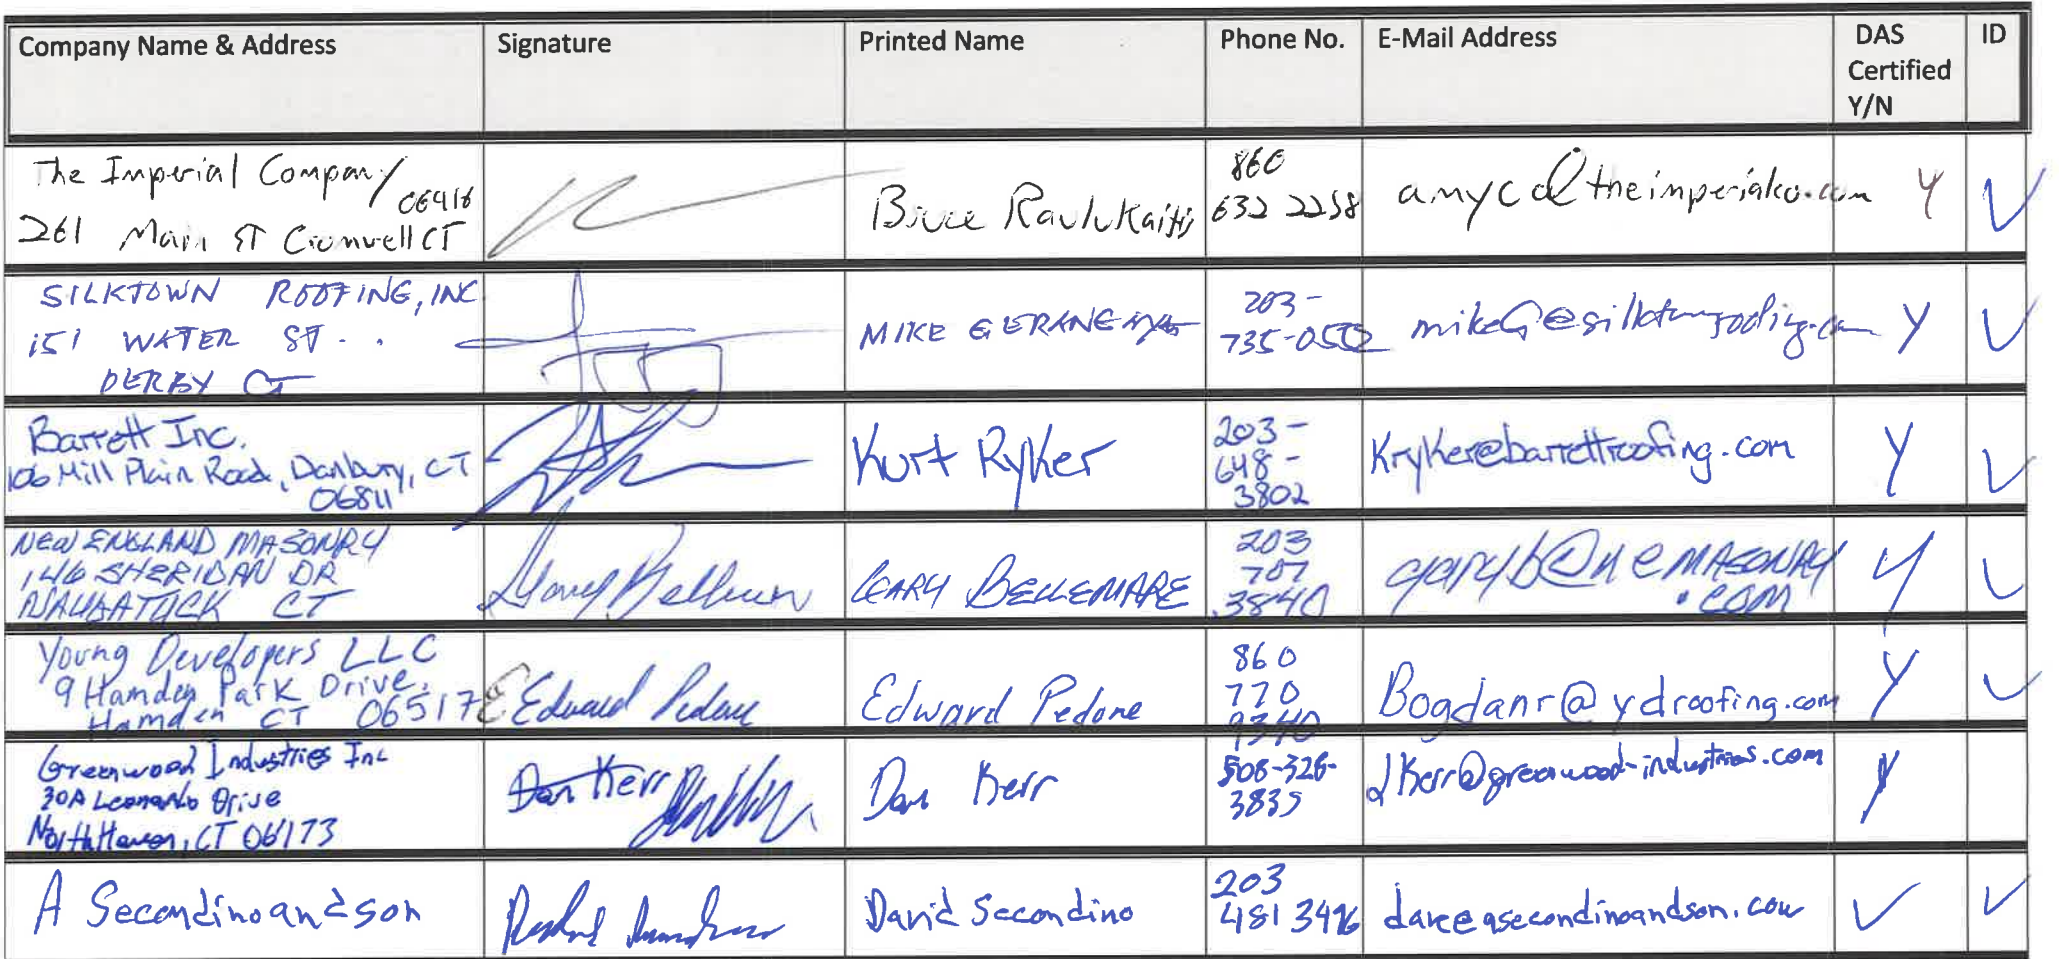 Company Name & Address Signature Printed Name Phone No. E-Mail Address DAS Certified Y/N ID
The Imperial Company 06416
261 Main ST Cromwell CT
Bruce Raulukaitis
860
632 2258
amyc@theimperialco.com
Y
SILKTOWN ROOFING, INC
151 WATER ST.
DERBY CT
MIKE
203-
735-0552
mikeG@silktownroofing.com
Y
Barrett Inc.
106 Mill Plain Road, Danbury, CT
06811
Kurt Ryker
203-
648-
3802
Kryker@barrettroofing.com
Y
NEW ENGLAND MASONRY
146 SHERIDAN DR
NAUGATUCK CT
Gary Bellemare
GARY BELLEMARE
203
707
3840
garyb@NEMASONRY
.COM
Y
Young Developers LLC
9 Hamden Park Drive,
Hamden CT 06517
Edward Pedone
Edward Pedone
860
770
9340
Bogdanr@ydroofing.com
Y
Greenwood Industries Inc
30A Leonardo Drive
North Haven, CT 06173
Dan Kerr
Dan Kerr
508-328-
3835
dkerr@greenwood-industries.com
Y
A Secondino and son
David Secondino
203
481 3496
dave@asecondinoandson.com